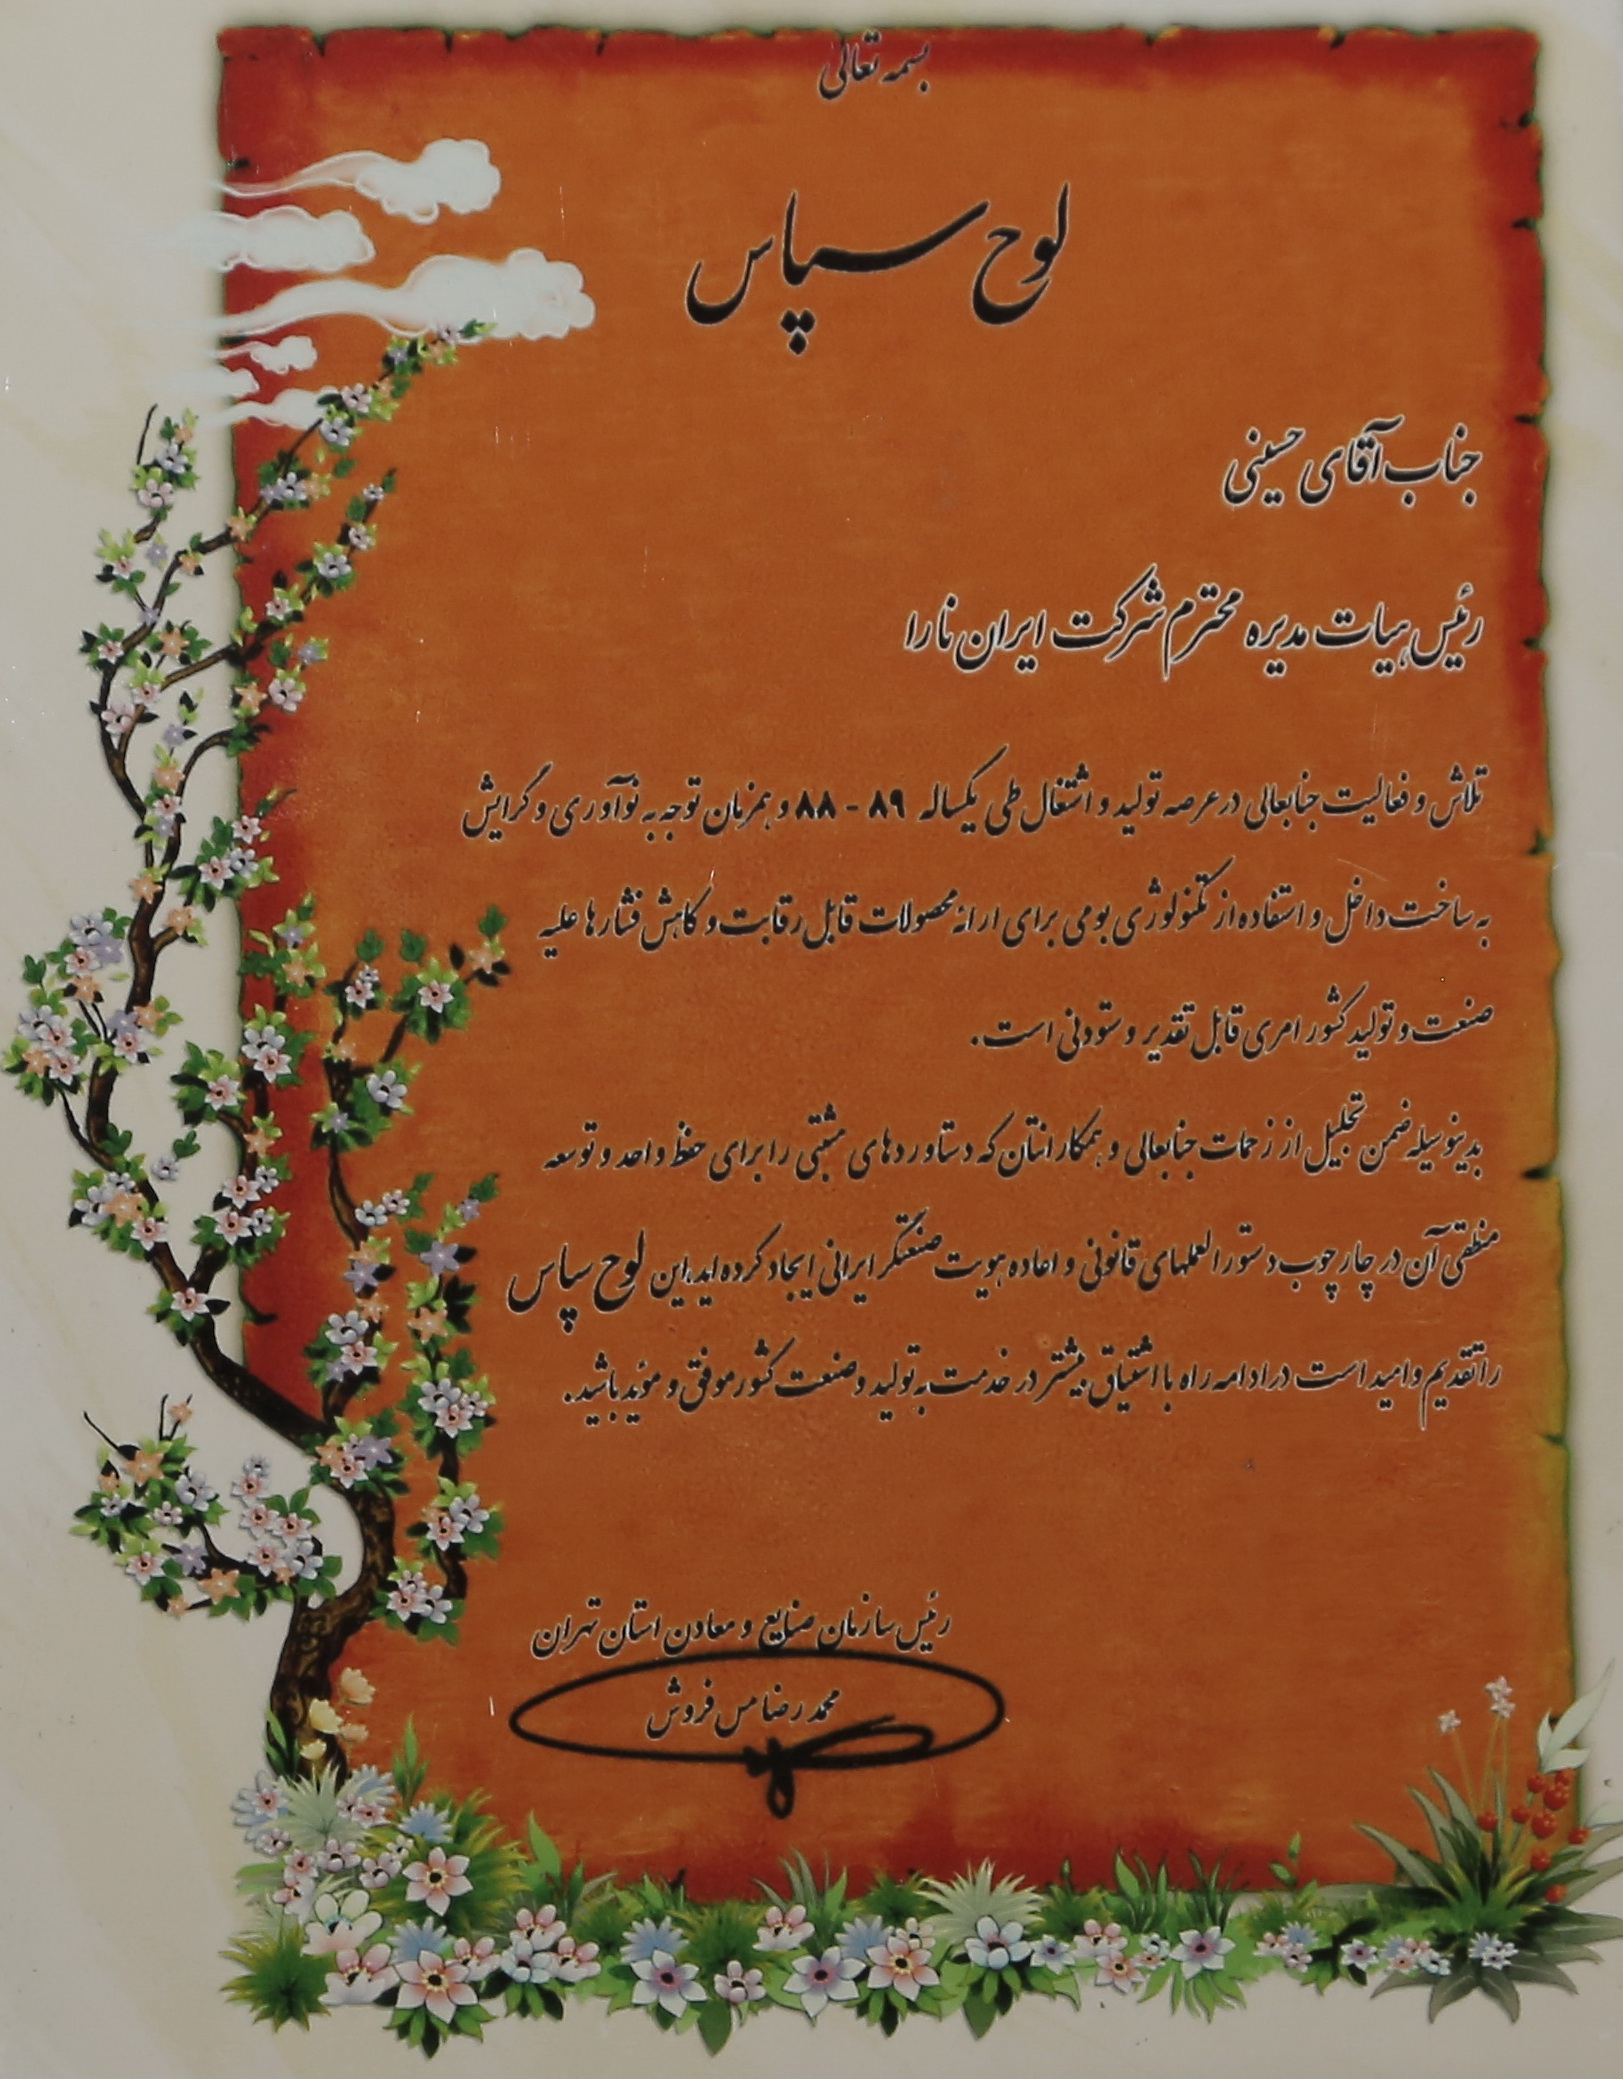 بسمه تعالی
لوح سپاس
جناب آقای حسینی
رئیس هیات مدیره محترم شرکت ایران نارا
تلاش و فعالیت جنابعالی در عرصه تولید و اشتغال طی یکساله ۸۹ - ۸۸ و همزمان توجه به نوآوری و گرایش
به ساخت داخل و استفاده از تکنولوژی بومی برای ارائه محصولات قابل رقابت و کاهش فشارها علیه
صنعت و تولید کشور امری قابل تقدیر و ستودنی است.
بدینوسیله ضمن تجلیل از زحمات جنابعالی و همکارانتان که دستاوردهای مثبتی را برای حفظ واحد و توسعه
منطقی آن در چارچوب دستورالعملهای قانونی و اعاده هویت صنعتگر ایرانی ایجاد کرده اید،این لوح سپاس
را تقدیم و امید است در ادامه راه با اشتیاق بیشتر در خدمت به تولید و صنعت کشور موفق و موئید باشید.
رئیس سازمان صنایع و معادن استان تهران
محمد رضا مس فروش